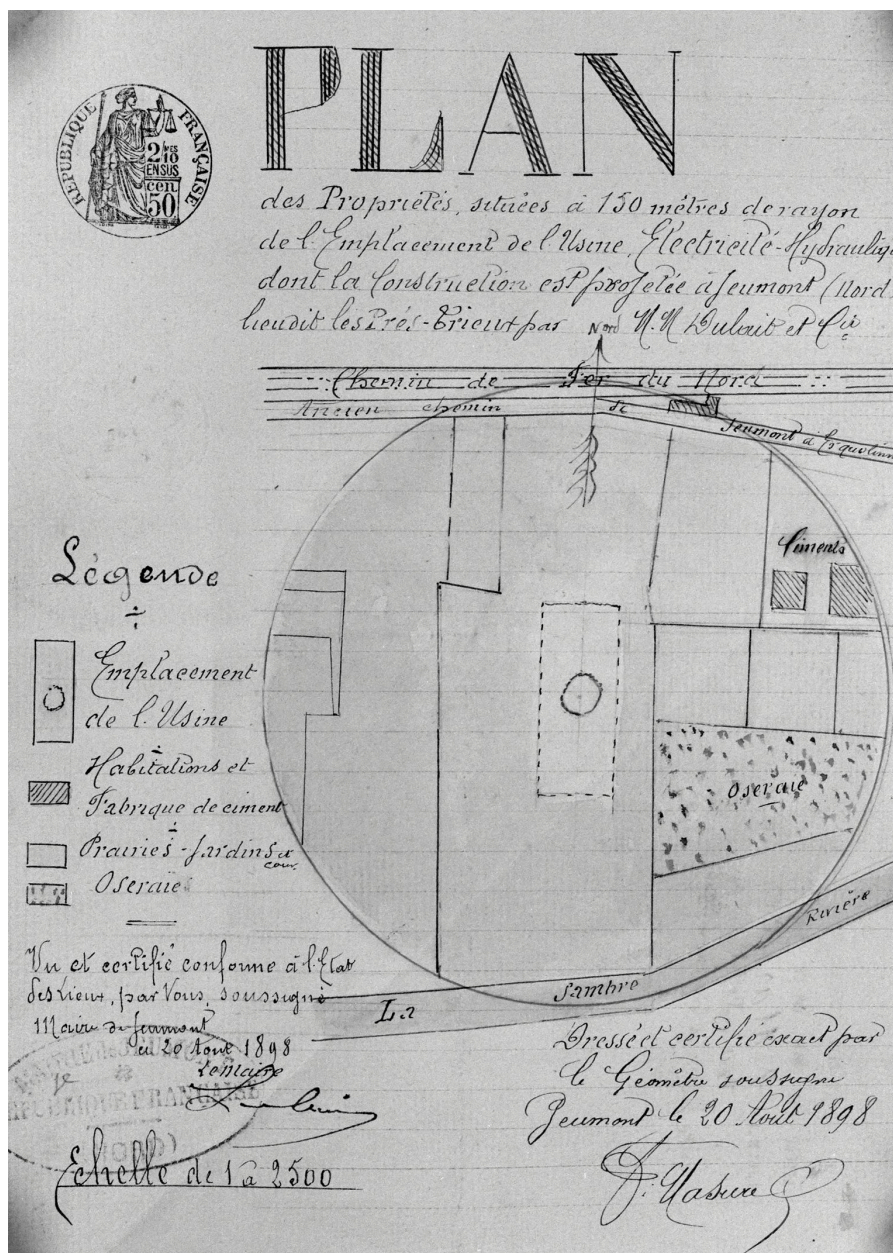 PLAN
RÉPUBLIQUE FRANÇAISE
2/10 MES
EN SUS
cen
50
des Propriétés, situées à 150 mètres de rayon
de l'Emplacement de l'Usine, Electricité-Hydrauliq
dont la Construction est projetée à Jeumont (Nord
lieudit les Prés- par M.M Dulait et Cie
Nord
Chemin de Fer du Nord
Ancien chemin de Jeumont à Erquelinn
Ciments
Légende
Emplacement
de l'Usine
Habitations et
Fabrique de ciment
Prairies-Jardins et
cour
Oseraies
Oseraie
Rivière
La Sambre
Vu et certifié conforme à l'Etat
des Lieux, par Nous, soussigné
Maire de Jeumont
le 20 Aout 1898
Le Maire
RÉPUBLIQUE FRANÇAISE
(NORD)
Echelle de 1 à 2500
Dressé et certifié exact par
le Géomètre soussigné
Jeumont le 20 Aout 1898